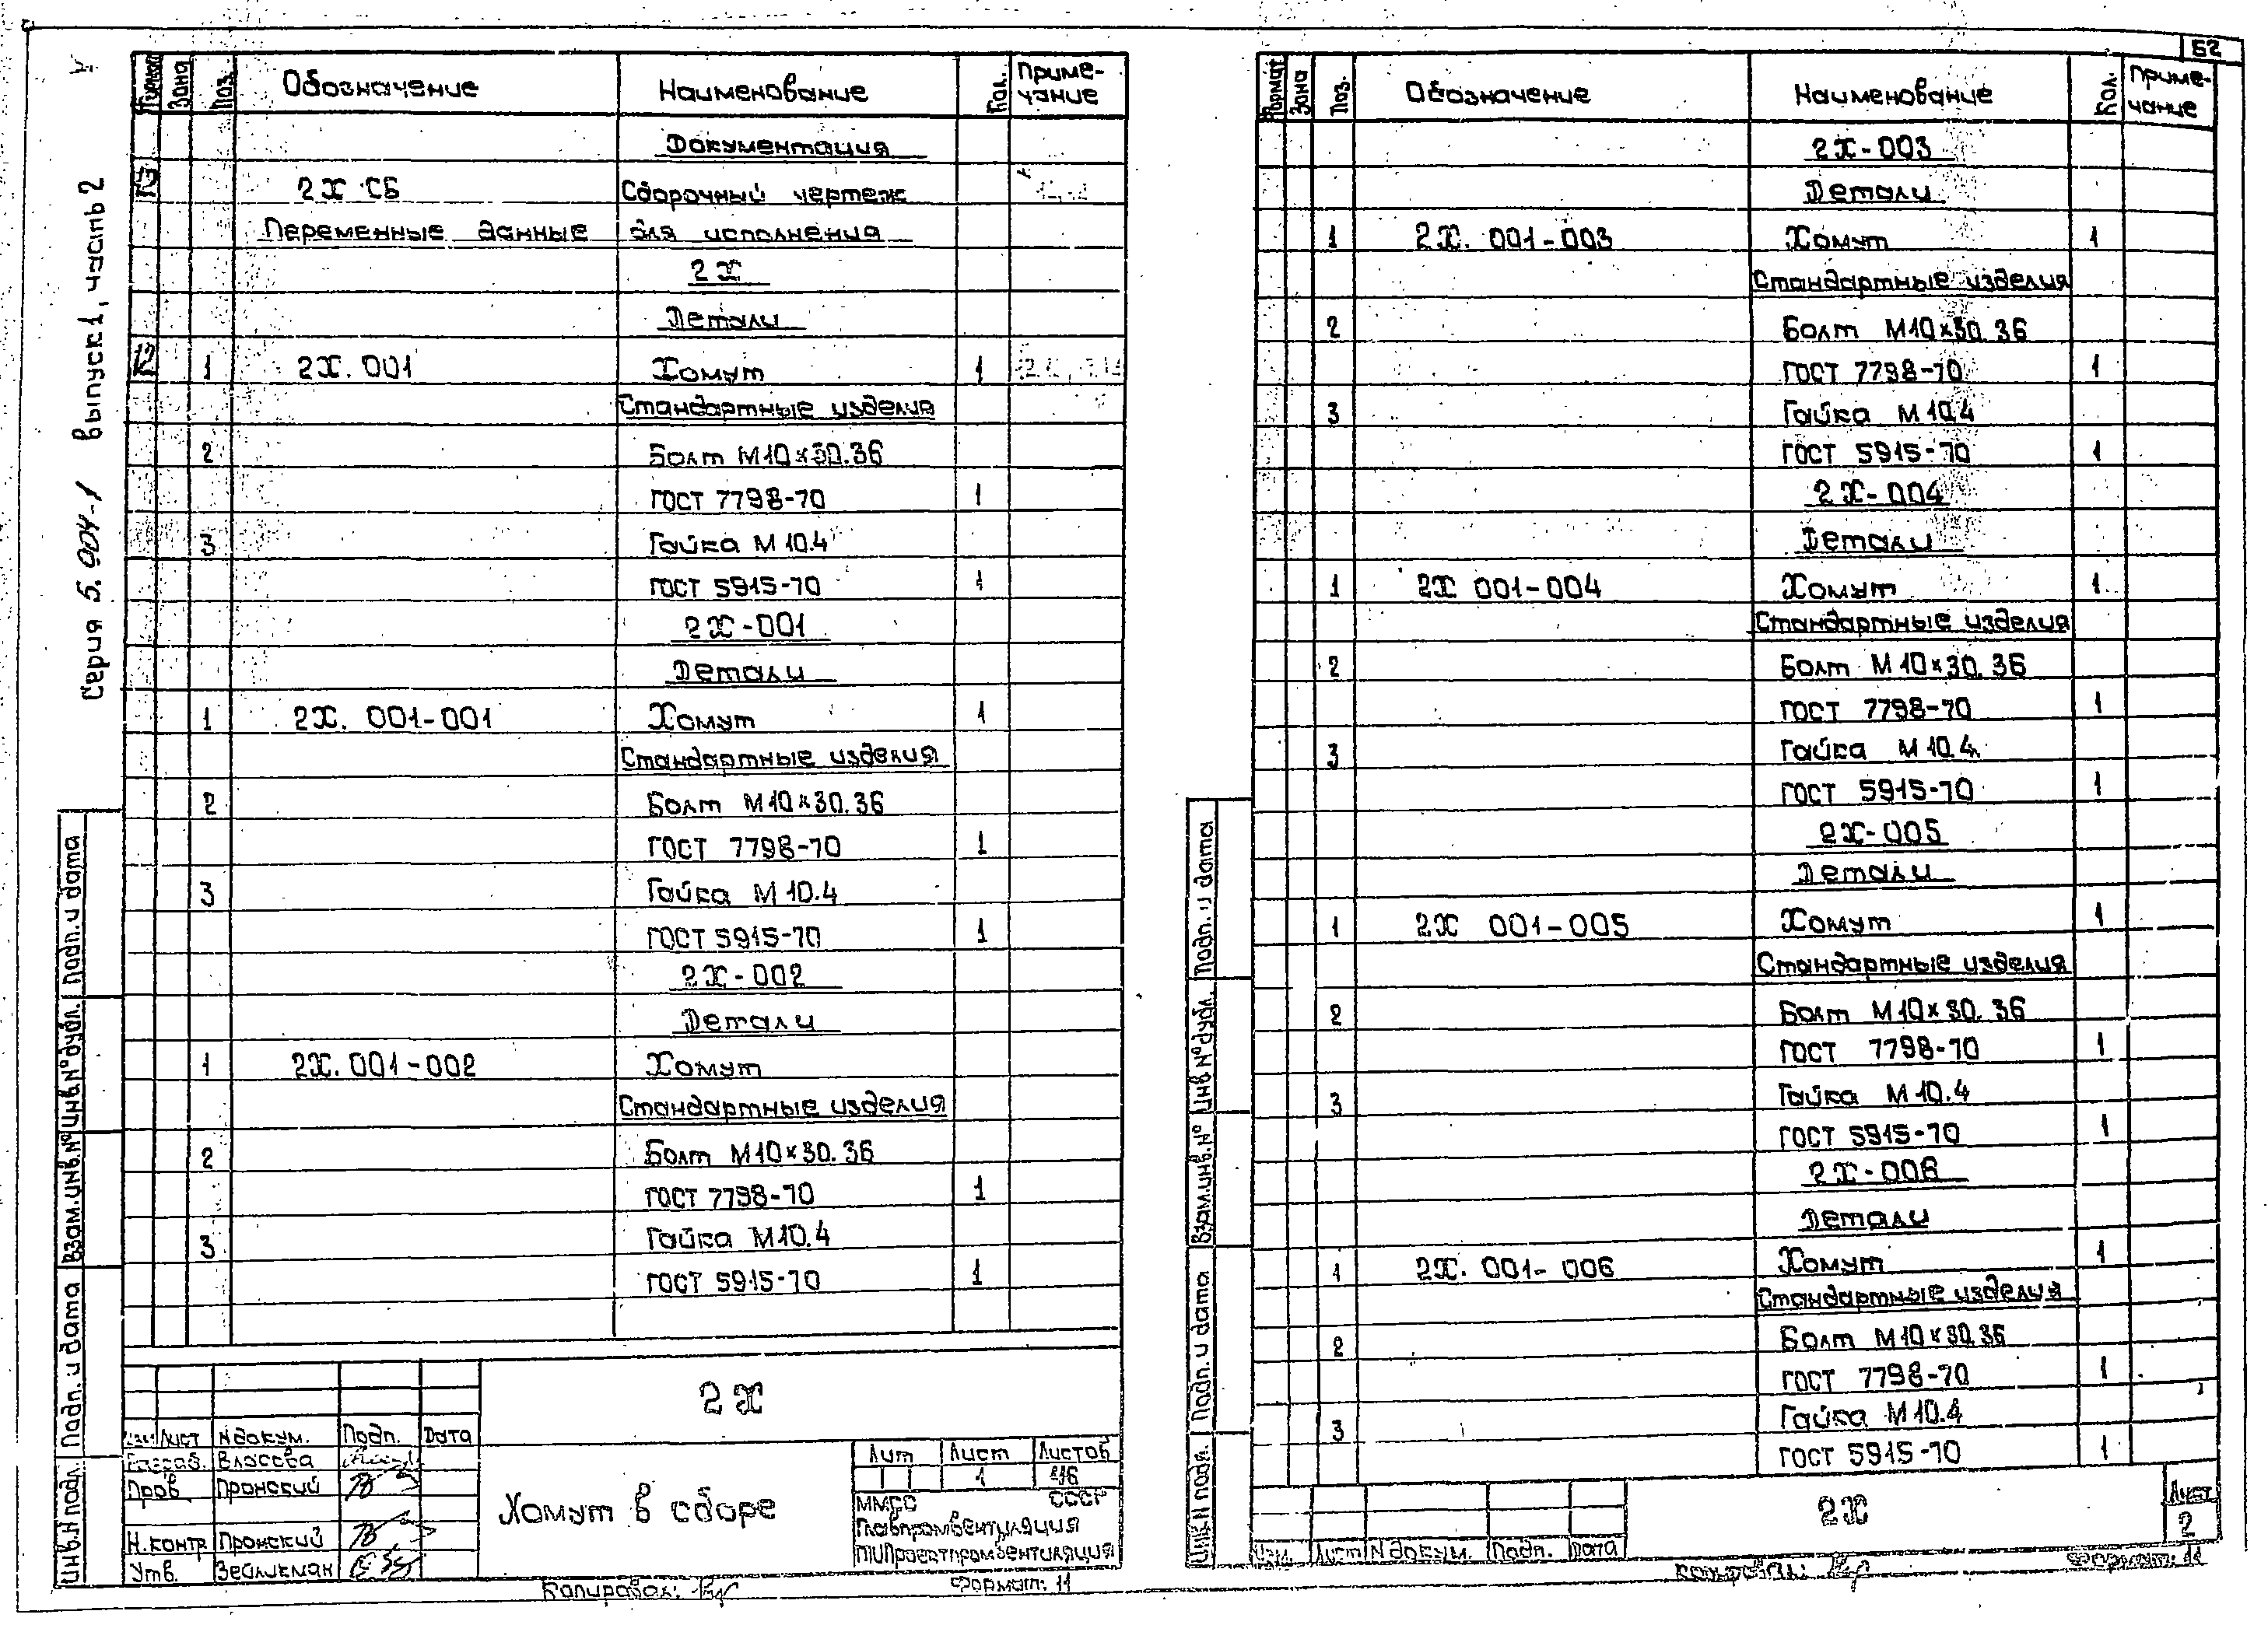 52
Серия 5.904-1 выпуск 1, часть 2
Формат Зона Поз. Обозначение Наименование Кол. Приме-чание
Документация
2Х СБ Сборочный чертеж
Переменные данные для исполнения
2Х
Детали
12 1 2Х.001 Хомут 1
Стандартные изделия
2 Болт М10×30.36
ГОСТ 7798-70 1
3 Гайка М10.4
ГОСТ 5915-70 1
2Х-001
Детали
1 2Х. 001-001 Хомут 1
Стандартные изделия
2 Болт М10×30.36
ГОСТ 7798-70 1
3 Гайка М10.4
ГОСТ 5915-70 1
2Х-002
Детали
1 2Х.001-002 Хомут
Стандартные изделия
2 Болт М10×30.36
ГОСТ 7798-70 1
3 Гайка М10.4
ГОСТ 5915-70 1
2Х
Изм Лист N докум. Подп. Дата
Разраб. Власова
Пров Пронский
Н.контр Пронский
Утв. Зейликман
Хомут в сборе
Лит Лист Листов
1
ММСС СССР
Главпромвентиляция
ГПИПроектпромвентиляция
Копировал:
Формат: 11
Инв.N подл. Подп. и дата Взам.инв.N° Инв.N° дубл. Подп. и дата
Формат Зона Поз. Обозначение Наименование Кол. Приме-чание
2Х-003
Детали
1 2Х. 001-003 Хомут 1
Стандартные изделия
2 Болт М10×30.36
ГОСТ 7798-70 1
3 Гайка М10.4
ГОСТ 5915-70 1
2Х-004
Детали
1 2Х 001-004 Хомут 1
Стандартные изделия
2 Болт М10×30.36
ГОСТ 7798-70 1
3 Гайка М10.4
ГОСТ 5915-70 1
2Х-005
Детали
1 2Х 001-005 Хомут 1
Стандартные изделия
2 Болт М10×30.36
ГОСТ 7798-70 1
3 Гайка М10.4
ГОСТ 5915-70 1
2Х-006
Детали
1 2Х. 001-006 Хомут 1
Стандартные изделия
2 Болт М10×30.36
ГОСТ 7798-70 1
3 Гайка М10.4
ГОСТ 5915-70 1
2Х
Лист
2
Изм. Лист N докум. Подп. Дата
Копировал:
Формат: 11
Инв.N подл. Подп. и дата Взам.инв.N° Инв N° дубл. Подп. и дата